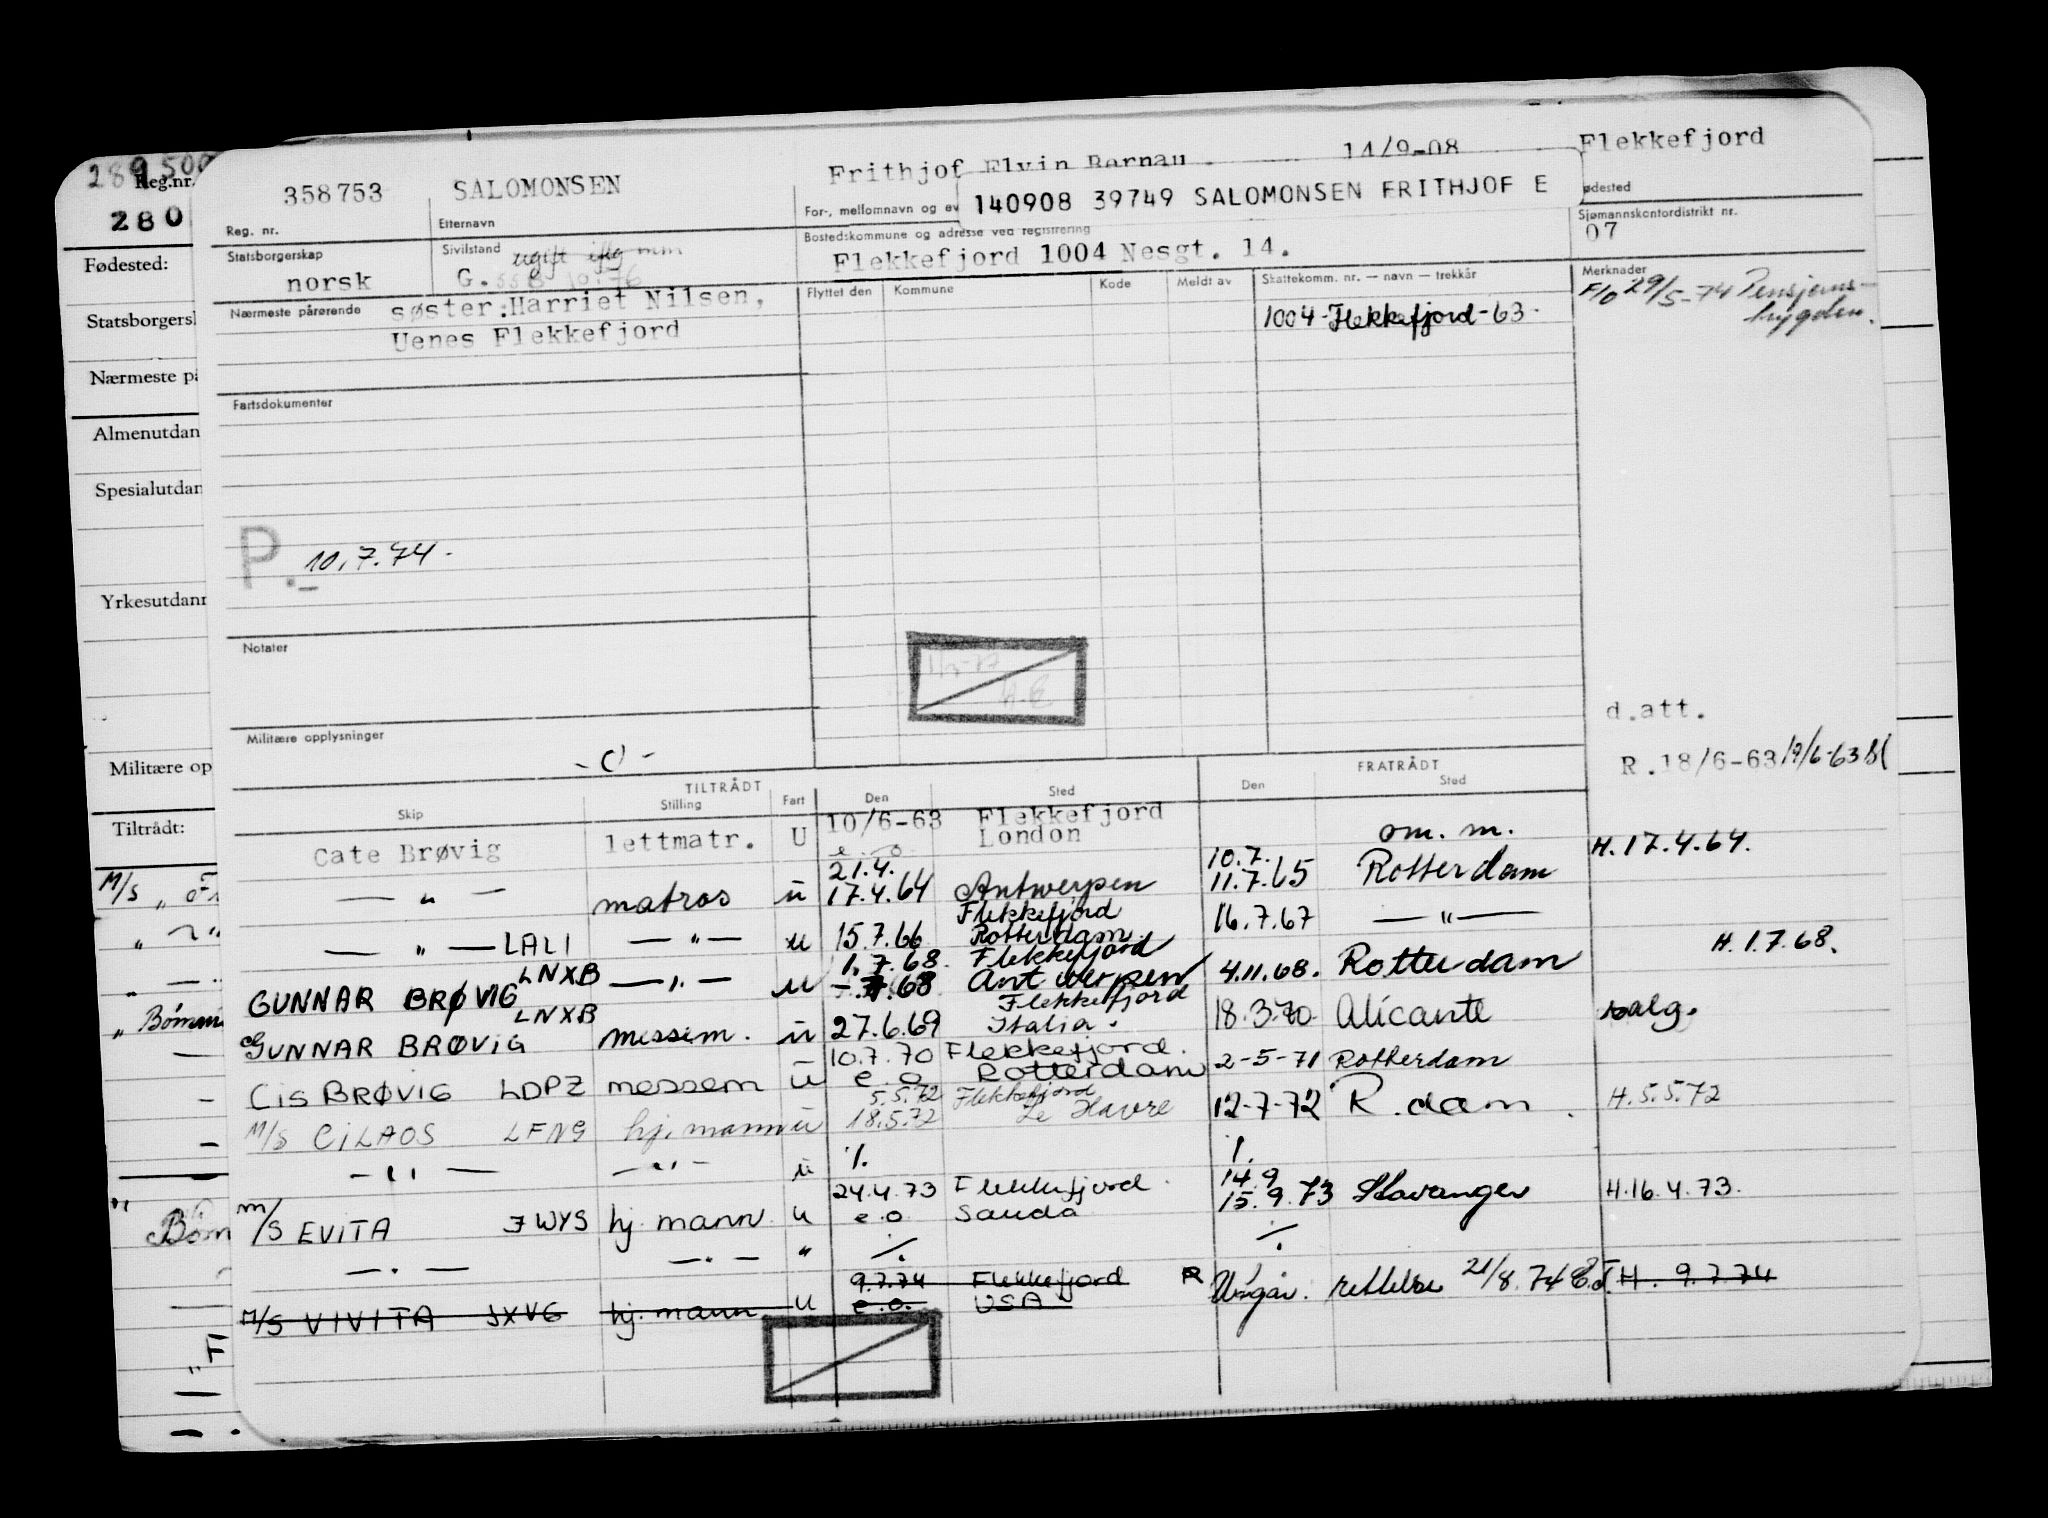 289500
Reg.nr.
280
Fødested:
Nærmeste
Almenutdan
Spesialutdan
Yrkesutdann
Militære op
Tiltrådt:
M/S
" Bømm
358753
Reg. nr.
SALOMONSEN
Etternavn
Frithjof Elvin Bernau
14/9-08
Flekkefjord
140908 39749 SALOMONSEN FRITHJOF E
For-, mellomnavn og ev
ødested
Statsborgerskap
norsk
Sivilstand
G.
ugift
Bostedskommune og adresse ved registrering
Flekkefjord 1004 Nesgt. 14.
Sjømannskontordistrikt nr.
07
Nærmeste pårørende
søster: Harriet Nilsen,
Uenes Flekkefjord
Flyttet den
Kommune
Kode
Meldt av
Skattekomm. nr. — navn — trekkår
1004-Flekkefjord-63.
Merknader
F/O 29/5-74 Pensjons-
trygden.
Fartsdokumenter
P.
10.7.74.
Notater
Militære opplysninger
d.att.
R.18/6-63
TILTRÅDT
FRATRÅDT
Skip
Stilling
Fart
Den
Sted
Den
Sted
Cate Brøvig lettmatr. U 10/6-63 Flekkefjord
e.o London om. m. H.17.4.64.
— " — matros u 21.4. 10.7.
17.4.64 Antwerpen 11.7.65 Rotterdam
Flekkefjord
— " — LALI — " — u 15.7.66 Rotterdam 16.7.67 — " —
1.7.68 Flekkefjord H.1.7.68.
GUNNAR BRØVIG LNXB — " — u 7.68 Antwerpen 4.11.68. Rotterdam
Flekkefjord
GUNNAR BRØVIG LNXB messem. u 27.6.69 Italia. 18.3.70 Alicante salg.
10.7.70 Flekkefjord.
Cis BRØVIG LDPZ messem u e.o Rotterdam 2-5-71 Rotterdam
5.5.72 Flekkefjord
M/S CILAOS LFNG hj. mann u 18.5.72 Le Havre 12-7-72 R.dam. H.5.5.72
— " — — " — u ./. ./.
24.4.73 Flekkefjord. 14.9
M/S EVITA JWYS hj. mann u e.o Sauda 15.9.73 Stavanger H.16.4.73.
— " — — " — " ./. ./.
9.7.74 Flekkefjord R Utgår. rettelse 21/8.74 H. 9.7.74
M/S VIVITA JXVG hj. mann u e.o. USA